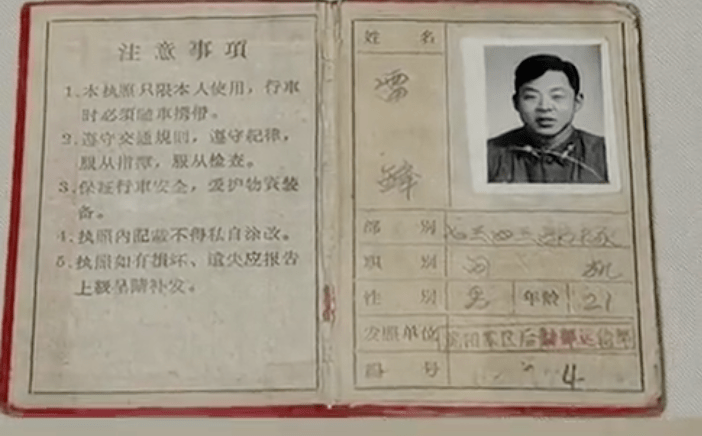 注意事項
1.本执照只限本人使用，行車
时必須隨車携带。
2.遵守交通規則，遵守紀律，
服从指揮，服从檢查。
3.保証行車安全，爱护物資装
备。
4.执照內記載不得私自涂改。
5.执照如有損坏、遺失应报告
上級呈請补发。
姓名 雷鋒
部別
职別 司机
性別 男 年龄 21
发照单位 沈阳軍区后勤部运输部
号 4